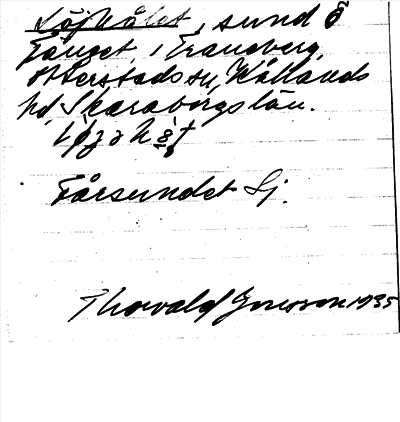 Löjhålet, sund Ö
Fånget, i Traneberg,
Otterstads sn, Kållands
hd, Skaraborgs län.
Fårsundet Sj.
Thorvald Jonsson 1935